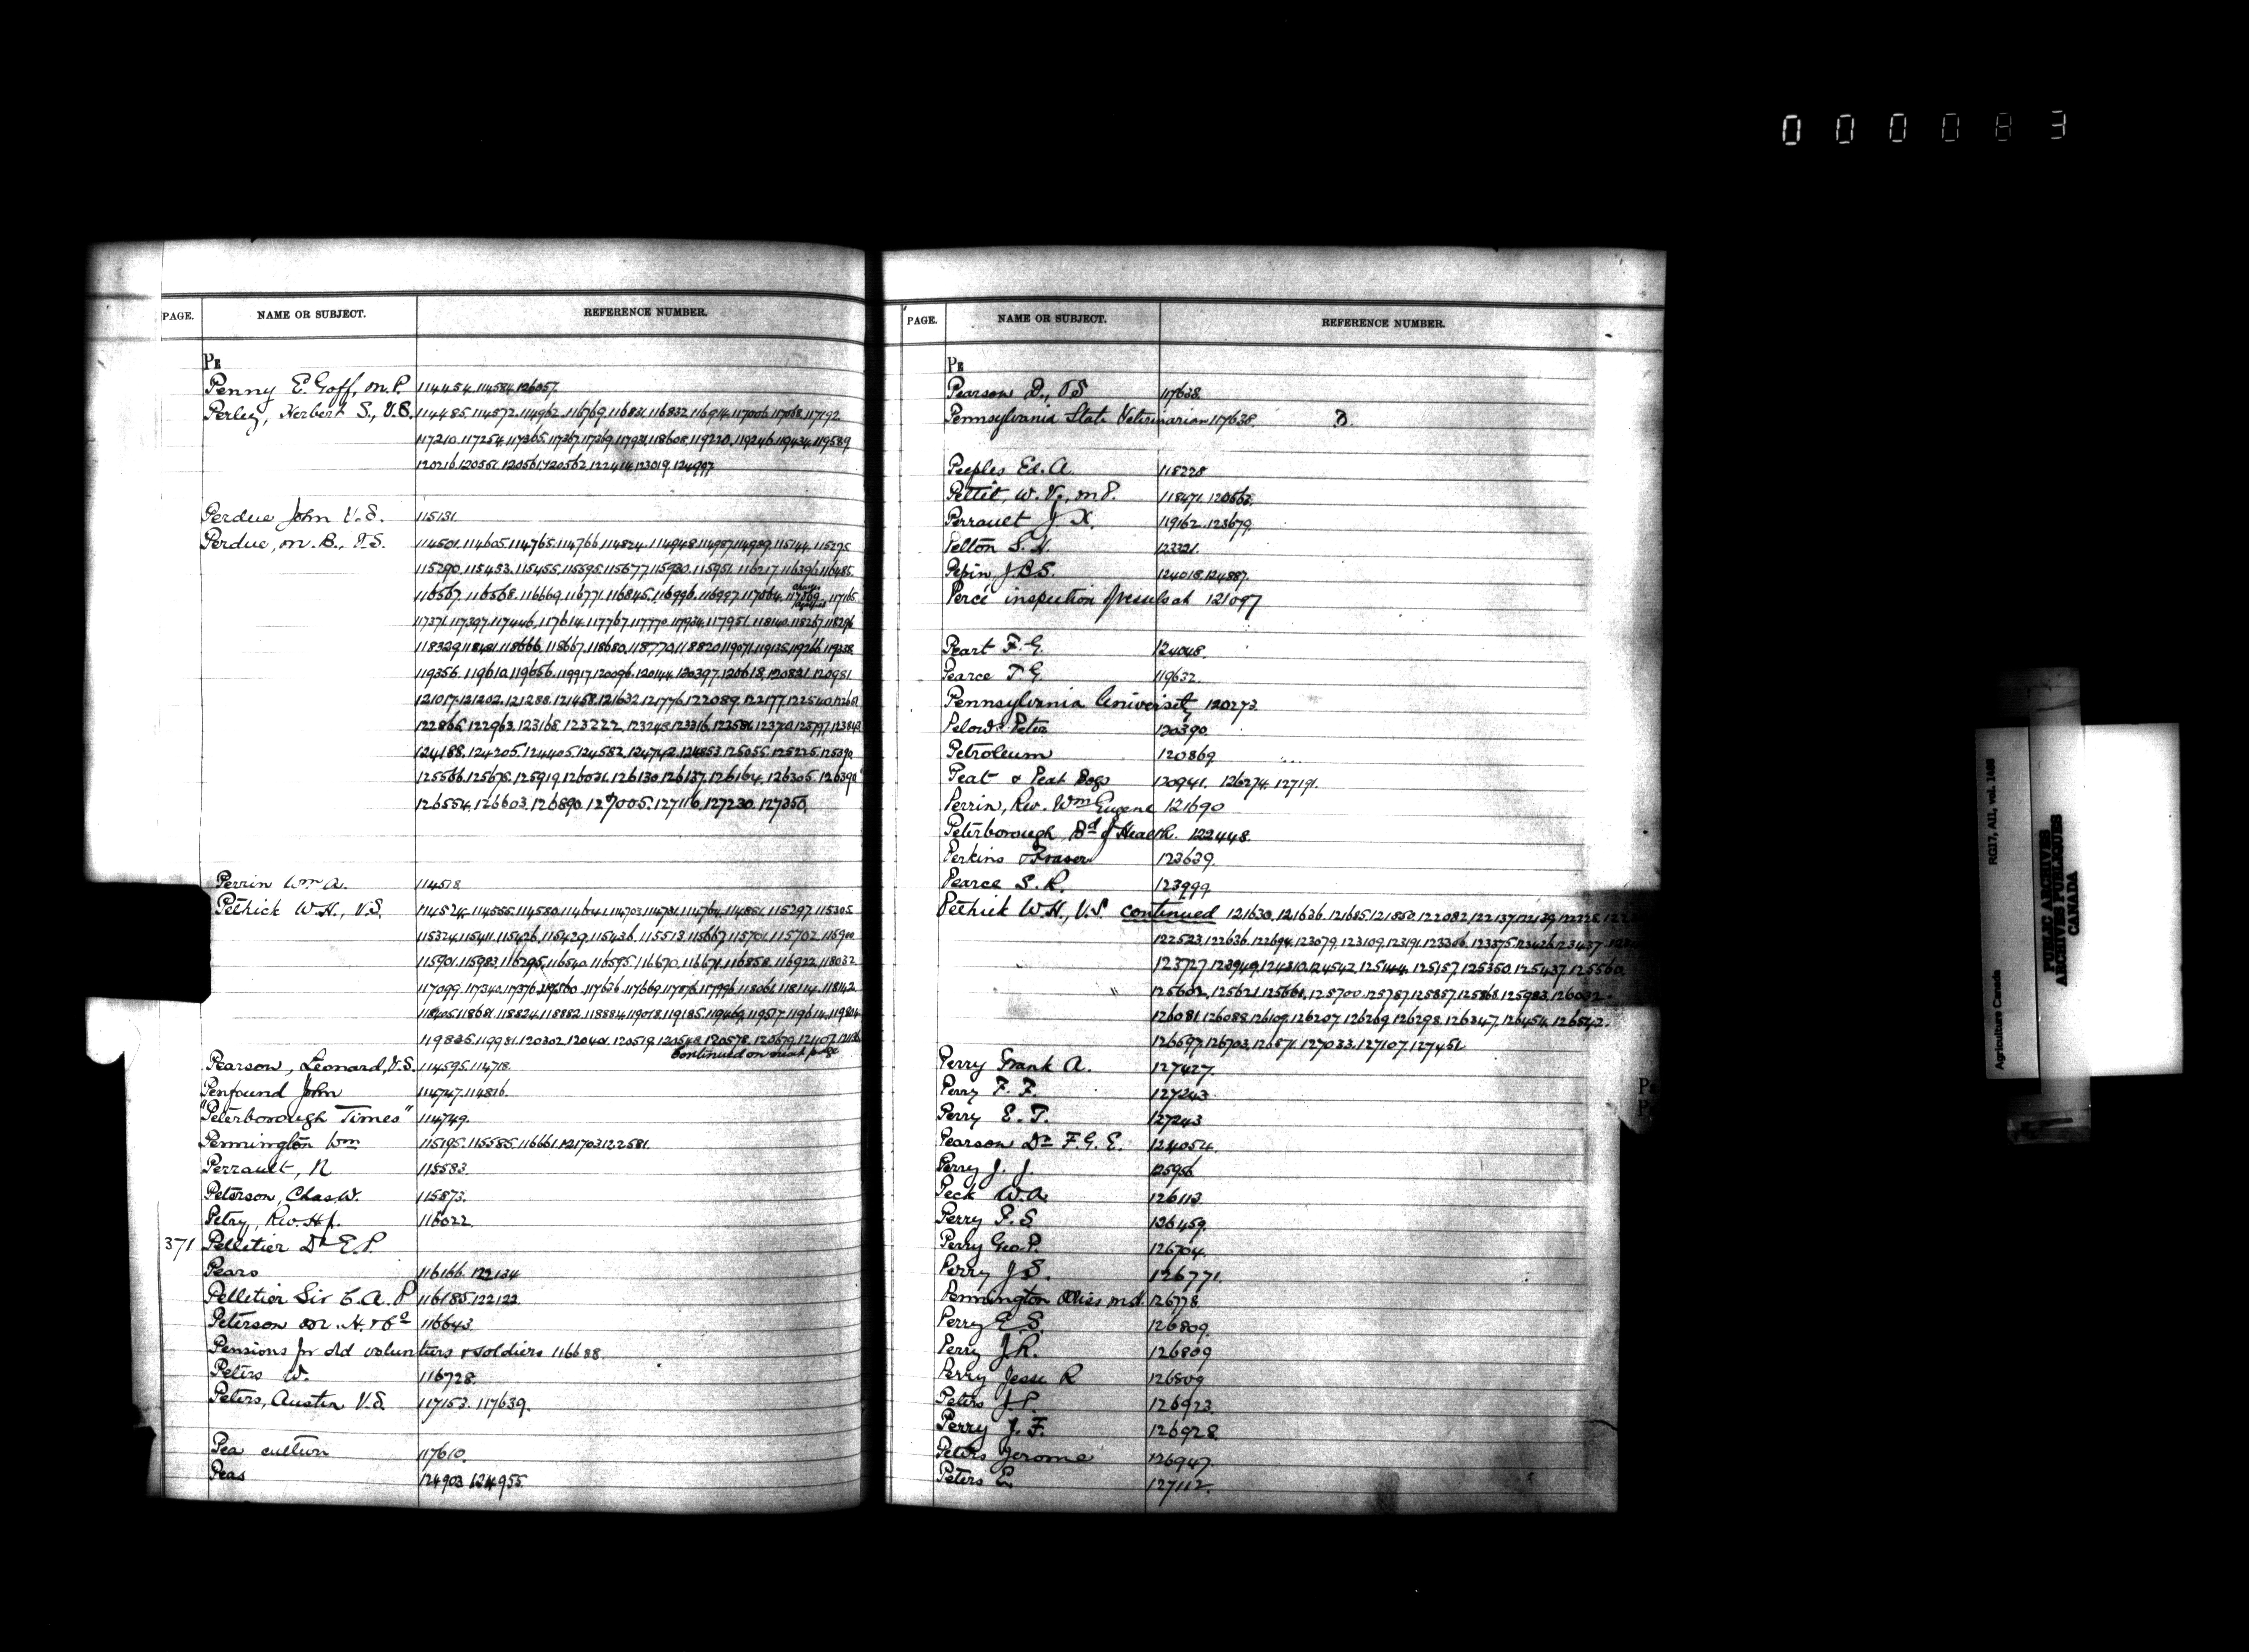 000083
PAGE. NAME OR SUBJECT. REFERENCE NUMBER.
PE
Penny E. Goff, M.P. 114454. 114584. 126057.
Perley, Herbert S., V.S. 114485. 114572. 114962. 116769. 116831. 116832. 116914. 117006. 117068. 117192
117210. 117254. 117365. 117367. 117369. 117931. 118608. 119220. 119246. 119434. 119589
120216. 120551. 120561. 120562. 122414. 123019. 124997
Perdue John V.S. 115131.
Perdue, M. B., V.S. 114501. 114605. 114765. 114766. 114824. 114948. 114987. 114989. 115144. 115275
115290. 115453. 115455. 115595. 115677. 115930. 115951. 116217. 116396. 116485.
116567. 116568. 116669. 116771. 116845. 116996. 116997. 117064. 117165.
117371. 117397. 117446. 117614. 117767. 117770. 117934. 117951. 118140. 118267. 118296
118329. 118666. 118667. 118680. 118770. 118820. 119071. 119135. 119266. 119338
119356. 119610. 119656. 119917. 120096. 120144. 120397. 120618. 120831. 120981
121017. 121202. 121288. 121458. 121632. 121776. 122089. 122177. 122540.
122866. 122963. 123168. 123222. 123248. 123316. 123797. 123843
124188. 124205. 124405. 124582. 124742. 124853. 125055. 125225. 125390
125566. 125678. 125919. 126031. 126130. 126137. 126164. 126305. 126390
126554. 126603. 126890. 127005. 127116. 127230. 127350.
Perrin Wm A. 114518
Pethick W.H., V.S. 114524. 114555. 114580. 114641. 114703. 114731. 114764. 114851. 115297. 115305
115324. 115411. 115426. 115429. 115436. 115513. 115667. 115701. 115702. 115900
115901. 115983. 116295. 116540. 116595. 116670. 116671. 116858. 116922. 118032
117099. 117340. 117376. 117636. 117669. 117876. 117996. 118061. 118114. 118142
118405. 118681. 118824. 118882. 118884. 119018. 119185. 119469. 119517. 119614.
119835. 119981. 120302. 120401. 120519. 120548. 120578. 120679. 121107.
Continued on next page
Pearson, Leonard, V.S. 114595. 114718.
Penfound John 114747. 114816.
"Peterborough Times" 114749.
Pennington Wm 115195. 115585. 116661. 121703. 122581.
Perrault, N 115583.
Peterson, Chas W. 115873.
Petry, Rev. H.J. 116022.
371 Pelletier Dr E.P.
Pears 116166. 122134
Pelletier Sir C. A. P 116185. 122122.
Peterson M. H. & Co 116643.
Pensions for old volunteers & soldiers 116688
Peters W. 116728.
Peters, Austin V.S. 117153. 117639.
Pea culture 117610.
Peas 124903. 124955.
PAGE. NAME OR SUBJECT. REFERENCE NUMBER.
PE
Pearson D., V.S 117638.
Pennsylvania State Veterinarian 117638.
Peeples Ed. A. 118228
Pettit, W. V., M.P. 118471. 120563.
Perrault J. X. 119162. 123679.
Pelton S. H. 123321.
Pepin, J.B.S. 124018. 124887.
Percé inspection of vessels at 121097
Peart F. G. 124048.
Pearce T G. 119632.
Pennsylvania University 120273.
Peter 120390
Petroleum 120869
Peat & Peat Bogs 120941. 126274. 127191.
Perrin, Rev. Wm Eugene 121690
Peterborough Bd of Health. 122448.
Perkins Fraser 123639.
Pearce S. R. 123999
Pethick W.H., V.S. continued 121630. 121636. 121685. 121850. 122082. 122137. 122139.
122523. 122636. 122694. 123079. 123109. 123191. 123306. 123375. 123426. 123437.
123727. 123949. 124310. 124542. 125144. 125157. 125350. 125437. 125560.
125602. 125621. 125661. 125700. 125787. 125857. 125868. 125983. 126032.
126081. 126088. 126109. 126207. 126269. 126298. 126347. 126454. 126542.
126597. 126703. 126871. 127033. 127107. 127451
Perry Frank A. 127427.
Perry F. F. 127243
Perry E. T. 127243
Pearson Dr F. G. E. 124054.
Perry J. J. 125956
Peck W.A. 126113
Perry P. S. 126459.
Perry Geo. P. 126704.
Perry J S. 126771.
Pennington Miss M.d. 126778
Perry E. S. 126809.
Perry J.R. 126809
Perry Jesse R 126809
Peters J. P. 126923.
Perry J. F. 126928.
Peters Jerome 126947.
Peters E. 127112.
Agriculture Canada RG17, AII, vol. 1488
PUBLIC ARCHIVES
ARCHIVES PUBLIQUES
CANADA